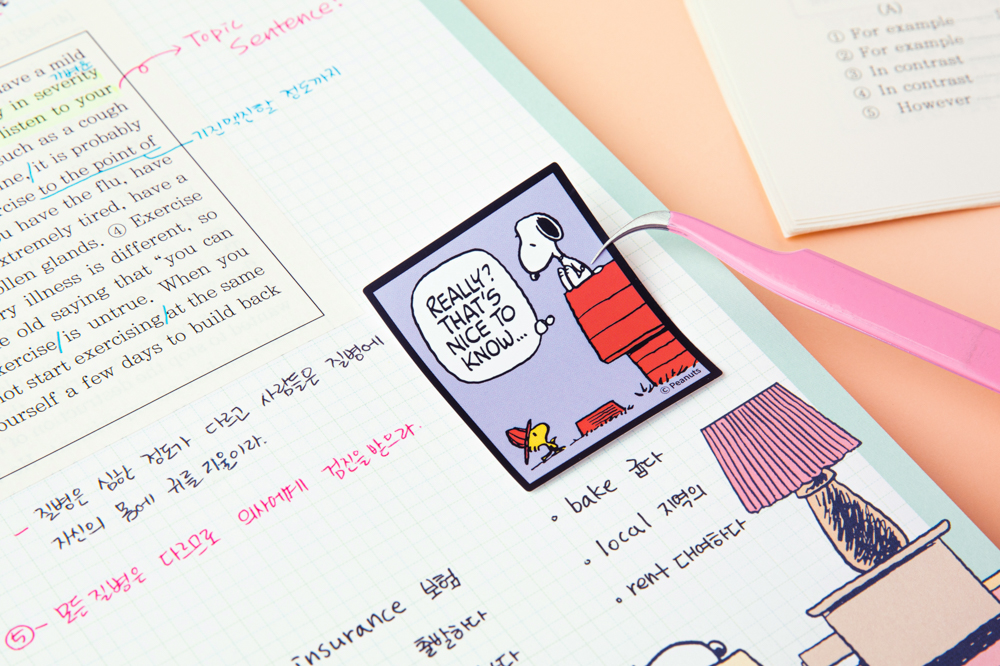 ave a mild
y in severity
listen to your
such as a cough
ne, it is probably
rcise to the point of
ou have the flu, have
xtremely tired, have a
ollen glands. ④ Exercise
ry illness is different, so
e old saying that "you can
xercise is untrue. When you
not start exercising at the same
ourself a few days to build back
Topic
Sentence!
- 질병은 심한 정도가 다르고 사람들은 질병에
자신의 몸에 귀를 기울이라.
⑤- 모든 질병은 다르므로 의사에게 검진을 받으라.
insurance 보험
출발하다
REALLY?
THAT'S
NICE TO
KNOW...
© Peanuts
• bake 굽다
• local 지역의
• rent 대여하다
(A)
① For example
② For example
③ In contrast
④ In contrast
⑤ However